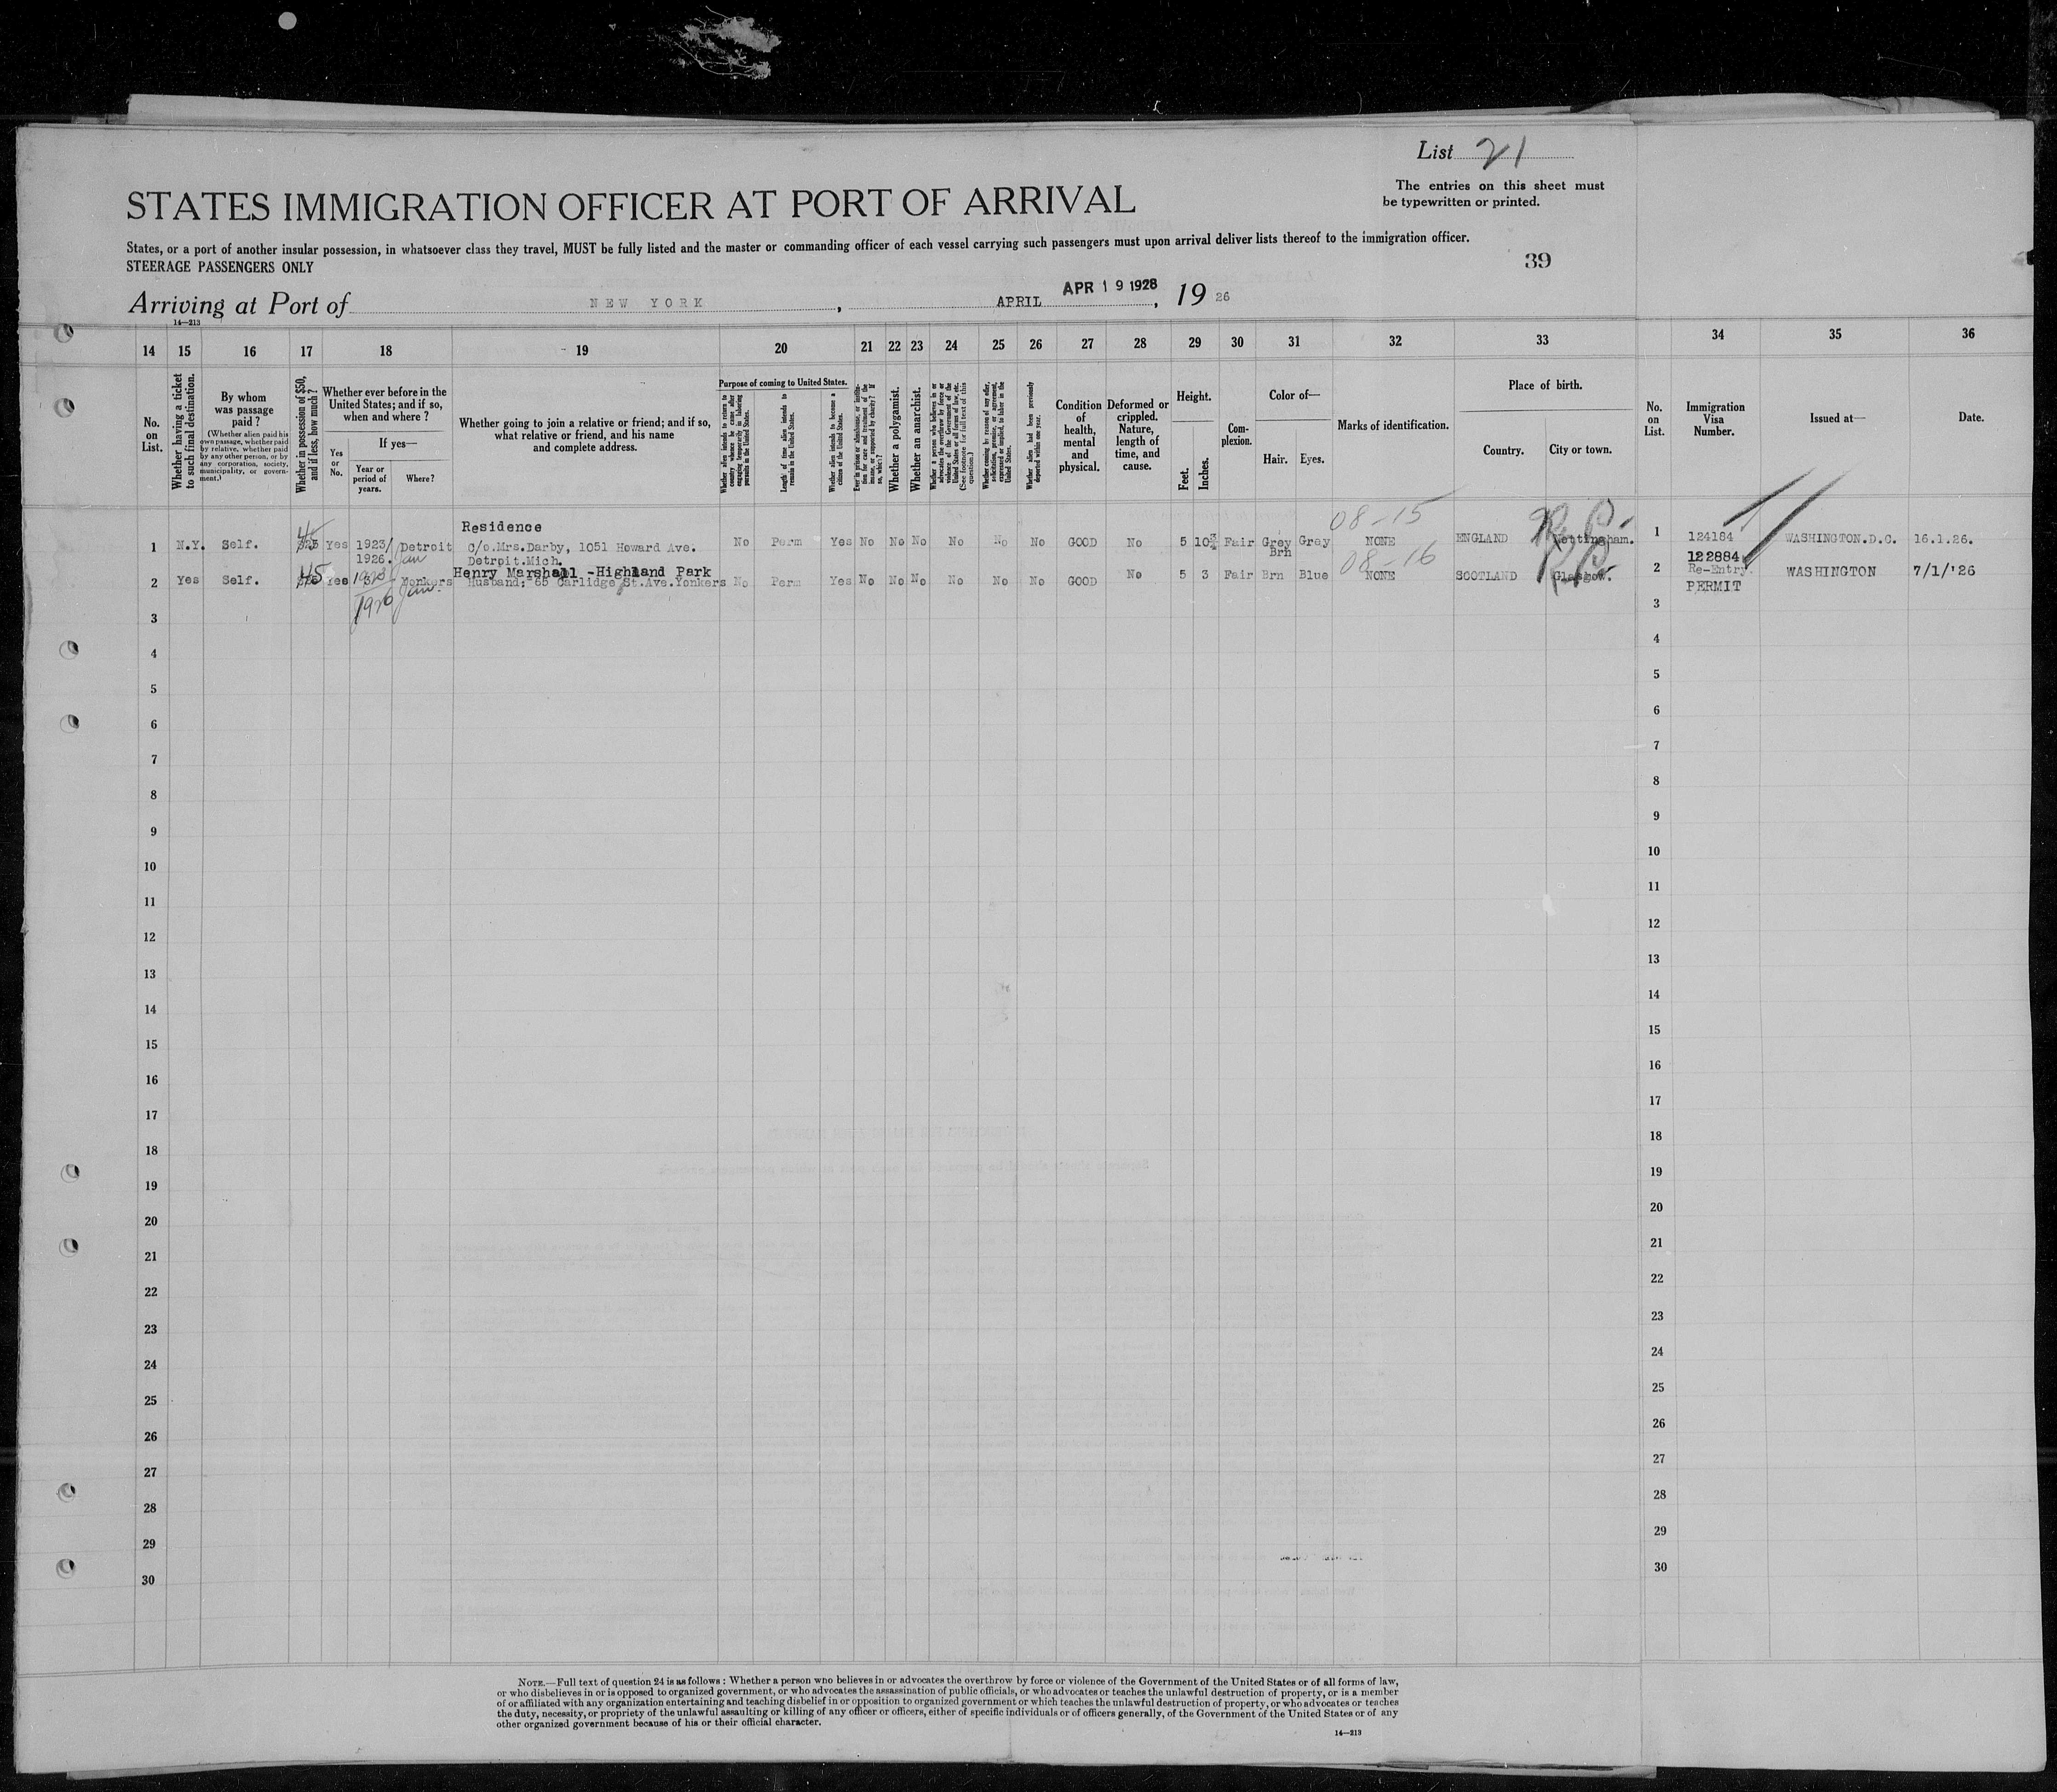 List 21
The entries on this sheet must
be typewritten or printed.
STATES IMMIGRATION OFFICER AT PORT OF ARRIVAL
States, or a port of another insular possession, in whatsoever class they travel, MUST be fully listed and the master or commanding officer of each vessel carrying such passengers must upon arrival deliver lists thereof to the immigration officer.
STEERAGE PASSENGERS ONLY
39
Arriving at Port of NEW YORK, APRIL APR 19 1926, 19 26
14—213
14 15 16 17 18 19 20 21 22 23 24 25 26 27 28 29 30 31 32 33 34 35 36
No. on List.
Whether having a ticket to such final destination.
By whom was passage paid?
(Whether alien paid his own passage, whether paid by relative, whether paid by any other person, or by any corporation, society, municipality, or government.)
Whether in possession of $50, and if less, how much?
Whether ever before in the United States; and if so, when and where?
Yes or No.
If yes—
Year or period of years.
Where?
Whether going to join a relative or friend; and if so, what relative or friend, and his name and complete address.
Purpose of coming to United States.
Whether alien intends to return to country whence he came after engaging temporarily in laboring pursuits in the United States.
Length of time alien intends to remain in the United States.
Whether alien intends to become a citizen of the United States.
Ever in prison or almshouse, or institution for care and treatment of the insane, or supported by charity? If so, which?
Whether a polygamist.
Whether an anarchist.
Whether a person who believes in or advocates the overthrow by force or violence of the Government of the United States or all forms of law, etc. (See footnote for full text of this question.)
Whether coming by reason of any offer, solicitation, promise, or agreement, expressed or implied, to labor in the United States.
Whether alien had been previously deported within one year.
Condition of health, mental and physical.
Deformed or crippled. Nature, length of time, and cause.
Height.
Feet.
Inches.
Complexion.
Color of—
Hair.
Eyes.
Marks of identification.
Place of birth.
Country.
City or town.
No. on List.
Immigration Visa Number.
Issued at—
Date.
08-15
Residence
1 N.Y. Self. 45 Yes 1923/ Detroit c/o.Mrs.Darby, 1051 Howard Ave. No Perm Yes No No No No No No GOOD No 5 10¾ Fair Grey Gray NONE ENGLAND Nottingham. 1 124184 WASHINGTON.D.C. 16.1.26.
1926. Jan Detroit.Mich. Brn 08-16 122884
Henry Marshall -Highland Park
2 Yes Self. 45 Yes 1923 Yonkers Husband; 65 Carlidge St.Ave.Yonkers No Perm Yes No No No No No No GOOD No 5 3 Fair Brn Blue NONE SCOTLAND Glasgow. 2 Re-Entry. WASHINGTON 7/1/'26
1926 Jan. PERMIT
3 3
4 4
5 5
6 6
7 7
8 8
9 9
10 10
11 11
12 12
13 13
14 14
15 15
16 16
17 17
18 18
19 19
20 20
21 21
22 22
23 23
24 24
25 25
26 26
27 27
28 28
29 29
30 30
NOTE.—Full text of question 24 is as follows: Whether a person who believes in or advocates the overthrow by force or violence of the Government of the United States or of all forms of law,
or who disbelieves in or is opposed to organized government, or who advocates the assassination of public officials, or who advocates or teaches the unlawful destruction of property, or is a member
of or affiliated with any organization entertaining and teaching disbelief in or opposition to organized government or which teaches the unlawful destruction of property, or who advocates or teaches
the duty, necessity, or propriety of the unlawful assaulting or killing of any officer or officers, either of specific individuals or of officers generally, of the Government of the United States or of any
other organized government because of his or their official character.
14—213